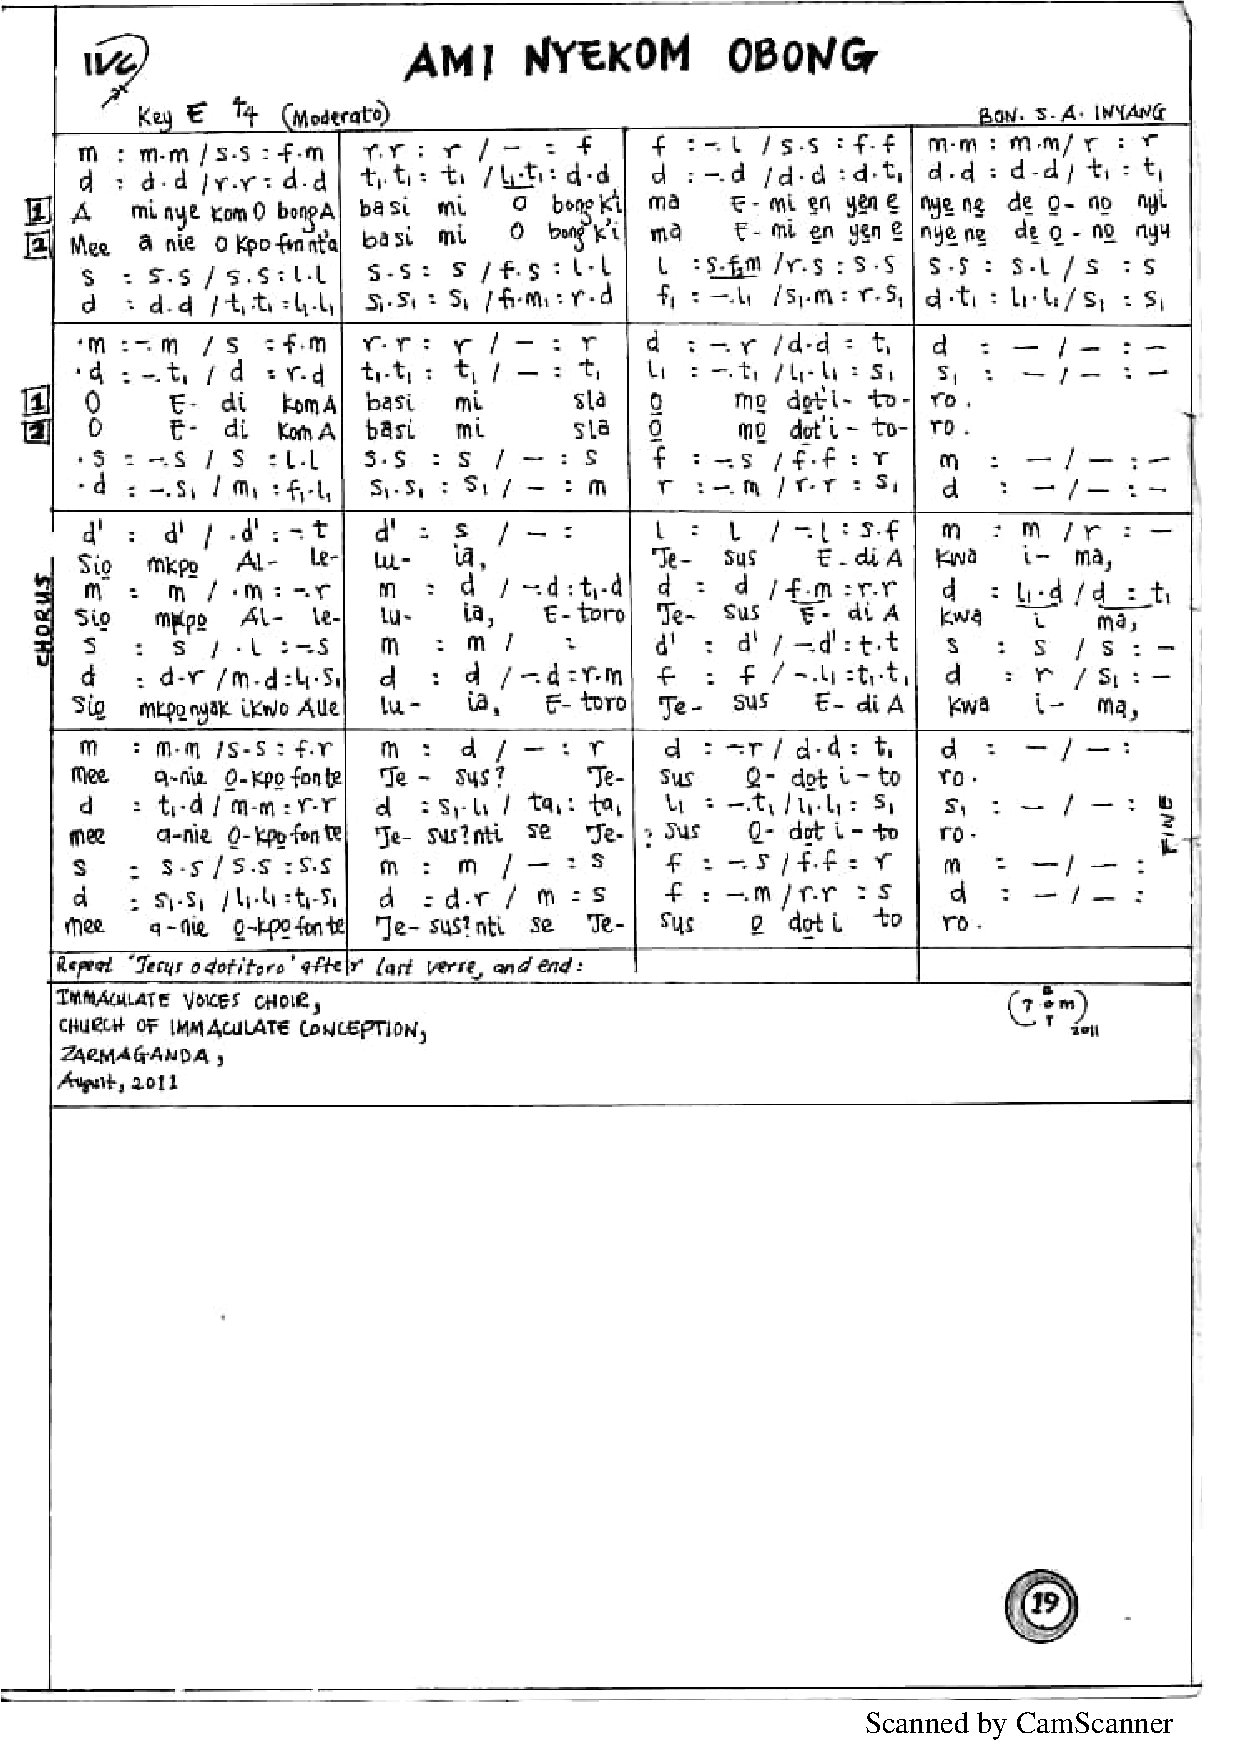 IVC
AMI NYEKOM OBONG
Key E 4/4 (Moderato)
BON. S. A. INYANG
m : m.m / s.s : f.m | r.r : r / – : f | f : –. l / s.s : f.f | m.m : m.m / r : r
d : d.d / r.r : d.d | t₁.t₁ : t₁ / l₁.t₁ : d.d | d : –.d / d.d : d.t₁ | d.d : d.d / t₁ : t₁
1 A mi nye kom O bong A | basi mi O bong k'i | ma E - mi en yen e | nye ne de o - no nyi
2 Mee a nie o kpo fon nt'a | basi mi O bong k'i | ma E - mi en yen e | nye ne de o - no nyu
s : s.s / s.s : l.l | s.s : s / f.s : l.l | l : s.f.m / r.s : s.s | s.s : s.l / s : s
d : d.d / t₁.t₁ : l₁.l₁ | s₁.s₁ : s₁ / f₁.m₁ : r.d | f₁ : –.l₁ / s₁.m : r.s₁ | d.t₁ : l₁.l₁ / s₁ : s₁
.m : –.m / s : f.m | r.r : r / – : r | d : –.r / d.d : t₁ | d : – / – : –
.d : –.t₁ / d : r.d | t₁.t₁ : t₁ / – : t₁ | l₁ : –.t₁ / l₁.l₁ : s₁ | s₁ : – / – : –
1 O E- di kom A | basi mi sla | O mo dot'i - to- | ro.
2 O E- di kom A | basi mi sla | O mo dot'i - to- | ro.
.s : –.s / s : l.l | s.s : s / – : s | f : –.s / f.f : r | m : – / – : –
.d : –.s₁ / m₁ : f₁.l₁ | s₁.s₁ : s₁ / – : m | r : –.m / r.r : s₁ | d : – / – : –
CHORUS
d' : d' / .d' : –t | d' : s / – : | l : l / –.l : s.f | m : m / r : –
Sio mkpo Al- le- | lu- ia, | Je- sus E-di A | kwa i- ma,
m : m / .m : –.r | m : d / –.d : t₁.d | d : d / f.m : r.r | d : l₁.d / d : t₁
Sio mkpo Al- le- | lu- ia, E-toro | Je- sus E- di A | kwa i ma,
s : s / .l : –.s | m : m / : | d' : d' / –.d' : t.t | s : s / s : –
d : d.r / m.d : l₁.s₁ | d : d / –.d : r.m | f : f / –.l₁ : t₁.t₁ | d : r / s₁ : –
Sio mkpo nyak ikwo Alle | lu- ia, E-toro | Je- sus E-di A | kwa i- ma,
m : m.m / s.s : f.r | m : d / – : r | d : –r / d.d : t₁ | d : – / – :
mee a-nie O-kpo fon te | Je - sus? Je- | sus O- dot i-to | ro.
d : t₁.d / m.m : r.r | d : s₁.l₁ / ta₁ : ta₁ | l₁ : –.t₁ / l₁.l₁ : s₁ | s₁ : – / – :
mee a-nie O-kpo fon te | Je- sus? nti se Je- | sus O- dot i-to | ro.
s : s.s / s.s : s.s | m : m / – : s | f : –.s / f.f : r | m : – / – :
d : s₁.s₁ / l₁.l₁ : t₁.s₁ | d : d.r / m : s | f : –.m / r.r : s | d : – / – :
mee a-nie o-kpo fon te | Je- sus? nti se Je- | sus o dot i to | ro.
FINE
Repeat 'Jesus odotitoro' after last verse, and end:
IMMACULATE VOICES CHOIR,
CHURCH OF IMMACULATE CONCEPTION,
ZARMAGANDA,
August, 2011
2011
19
Scanned by CamScanner